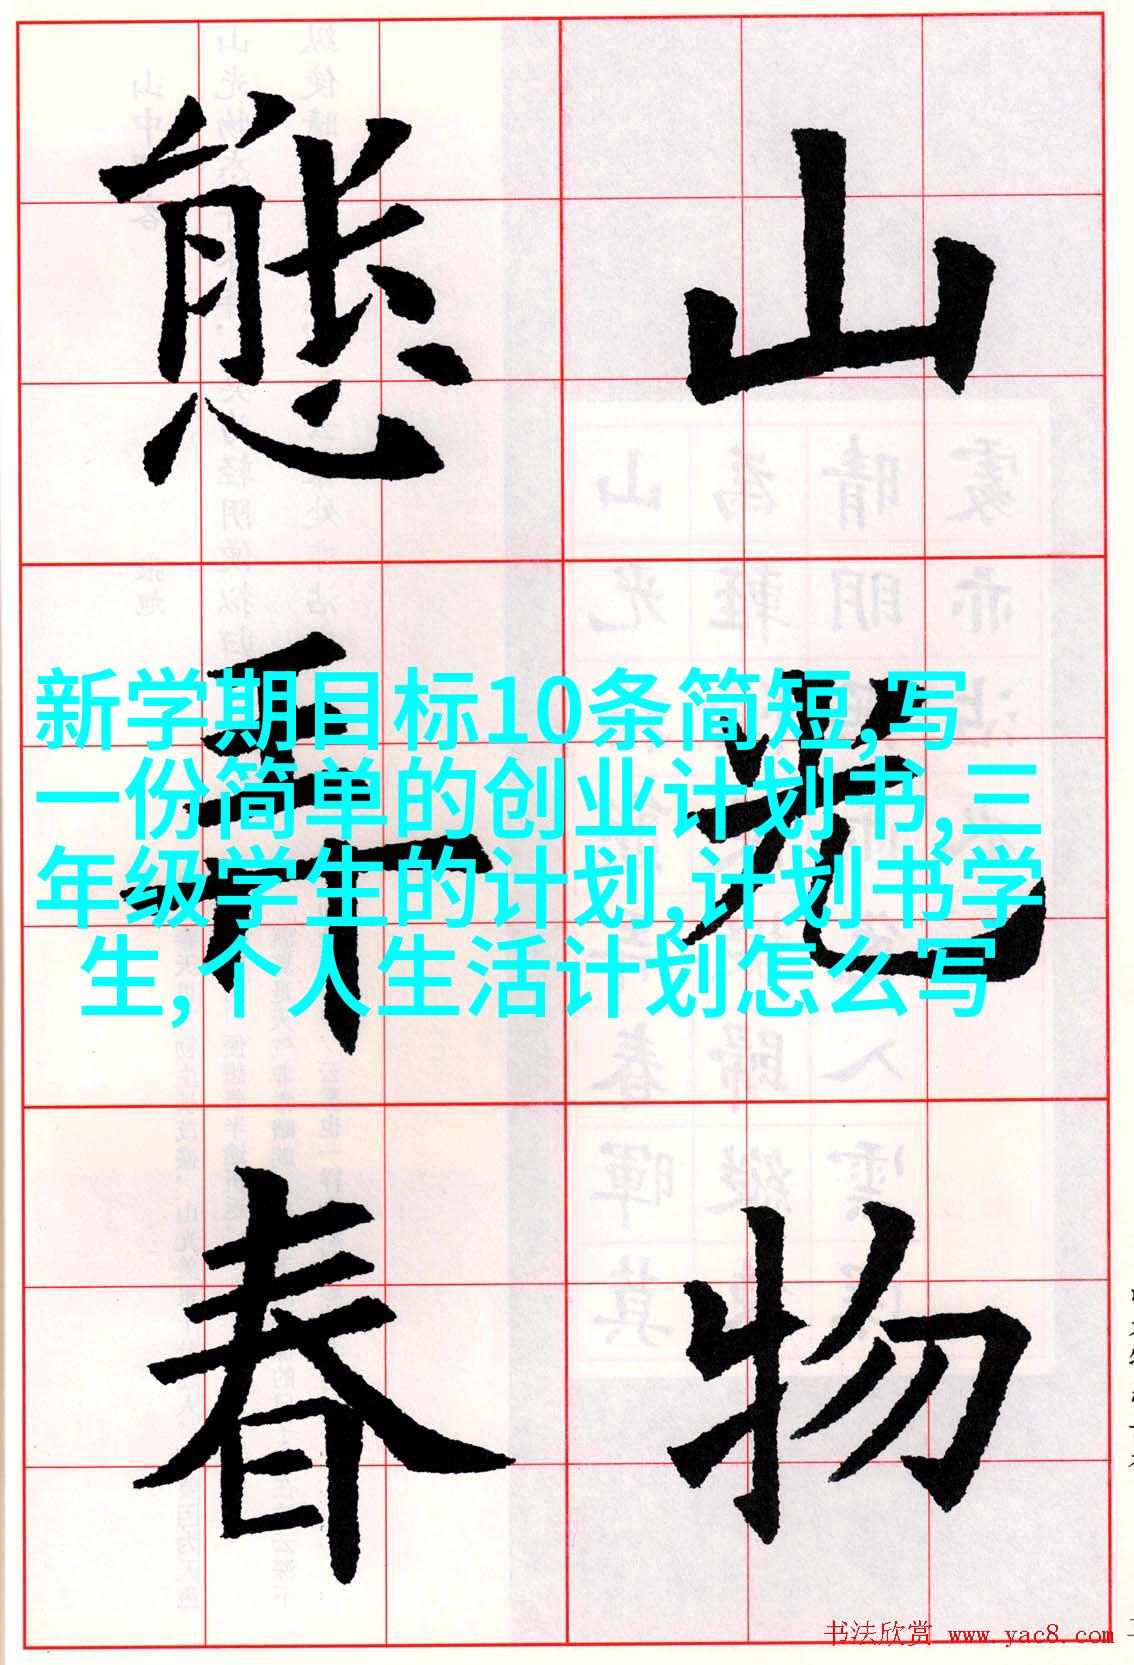 山光物
態弄春
新学期目标10条简短,写
一份简单的创业计划书,三
年级学生的计划,计划书学
生,个人生活计划怎么写
书法欣赏 www.yac8.com